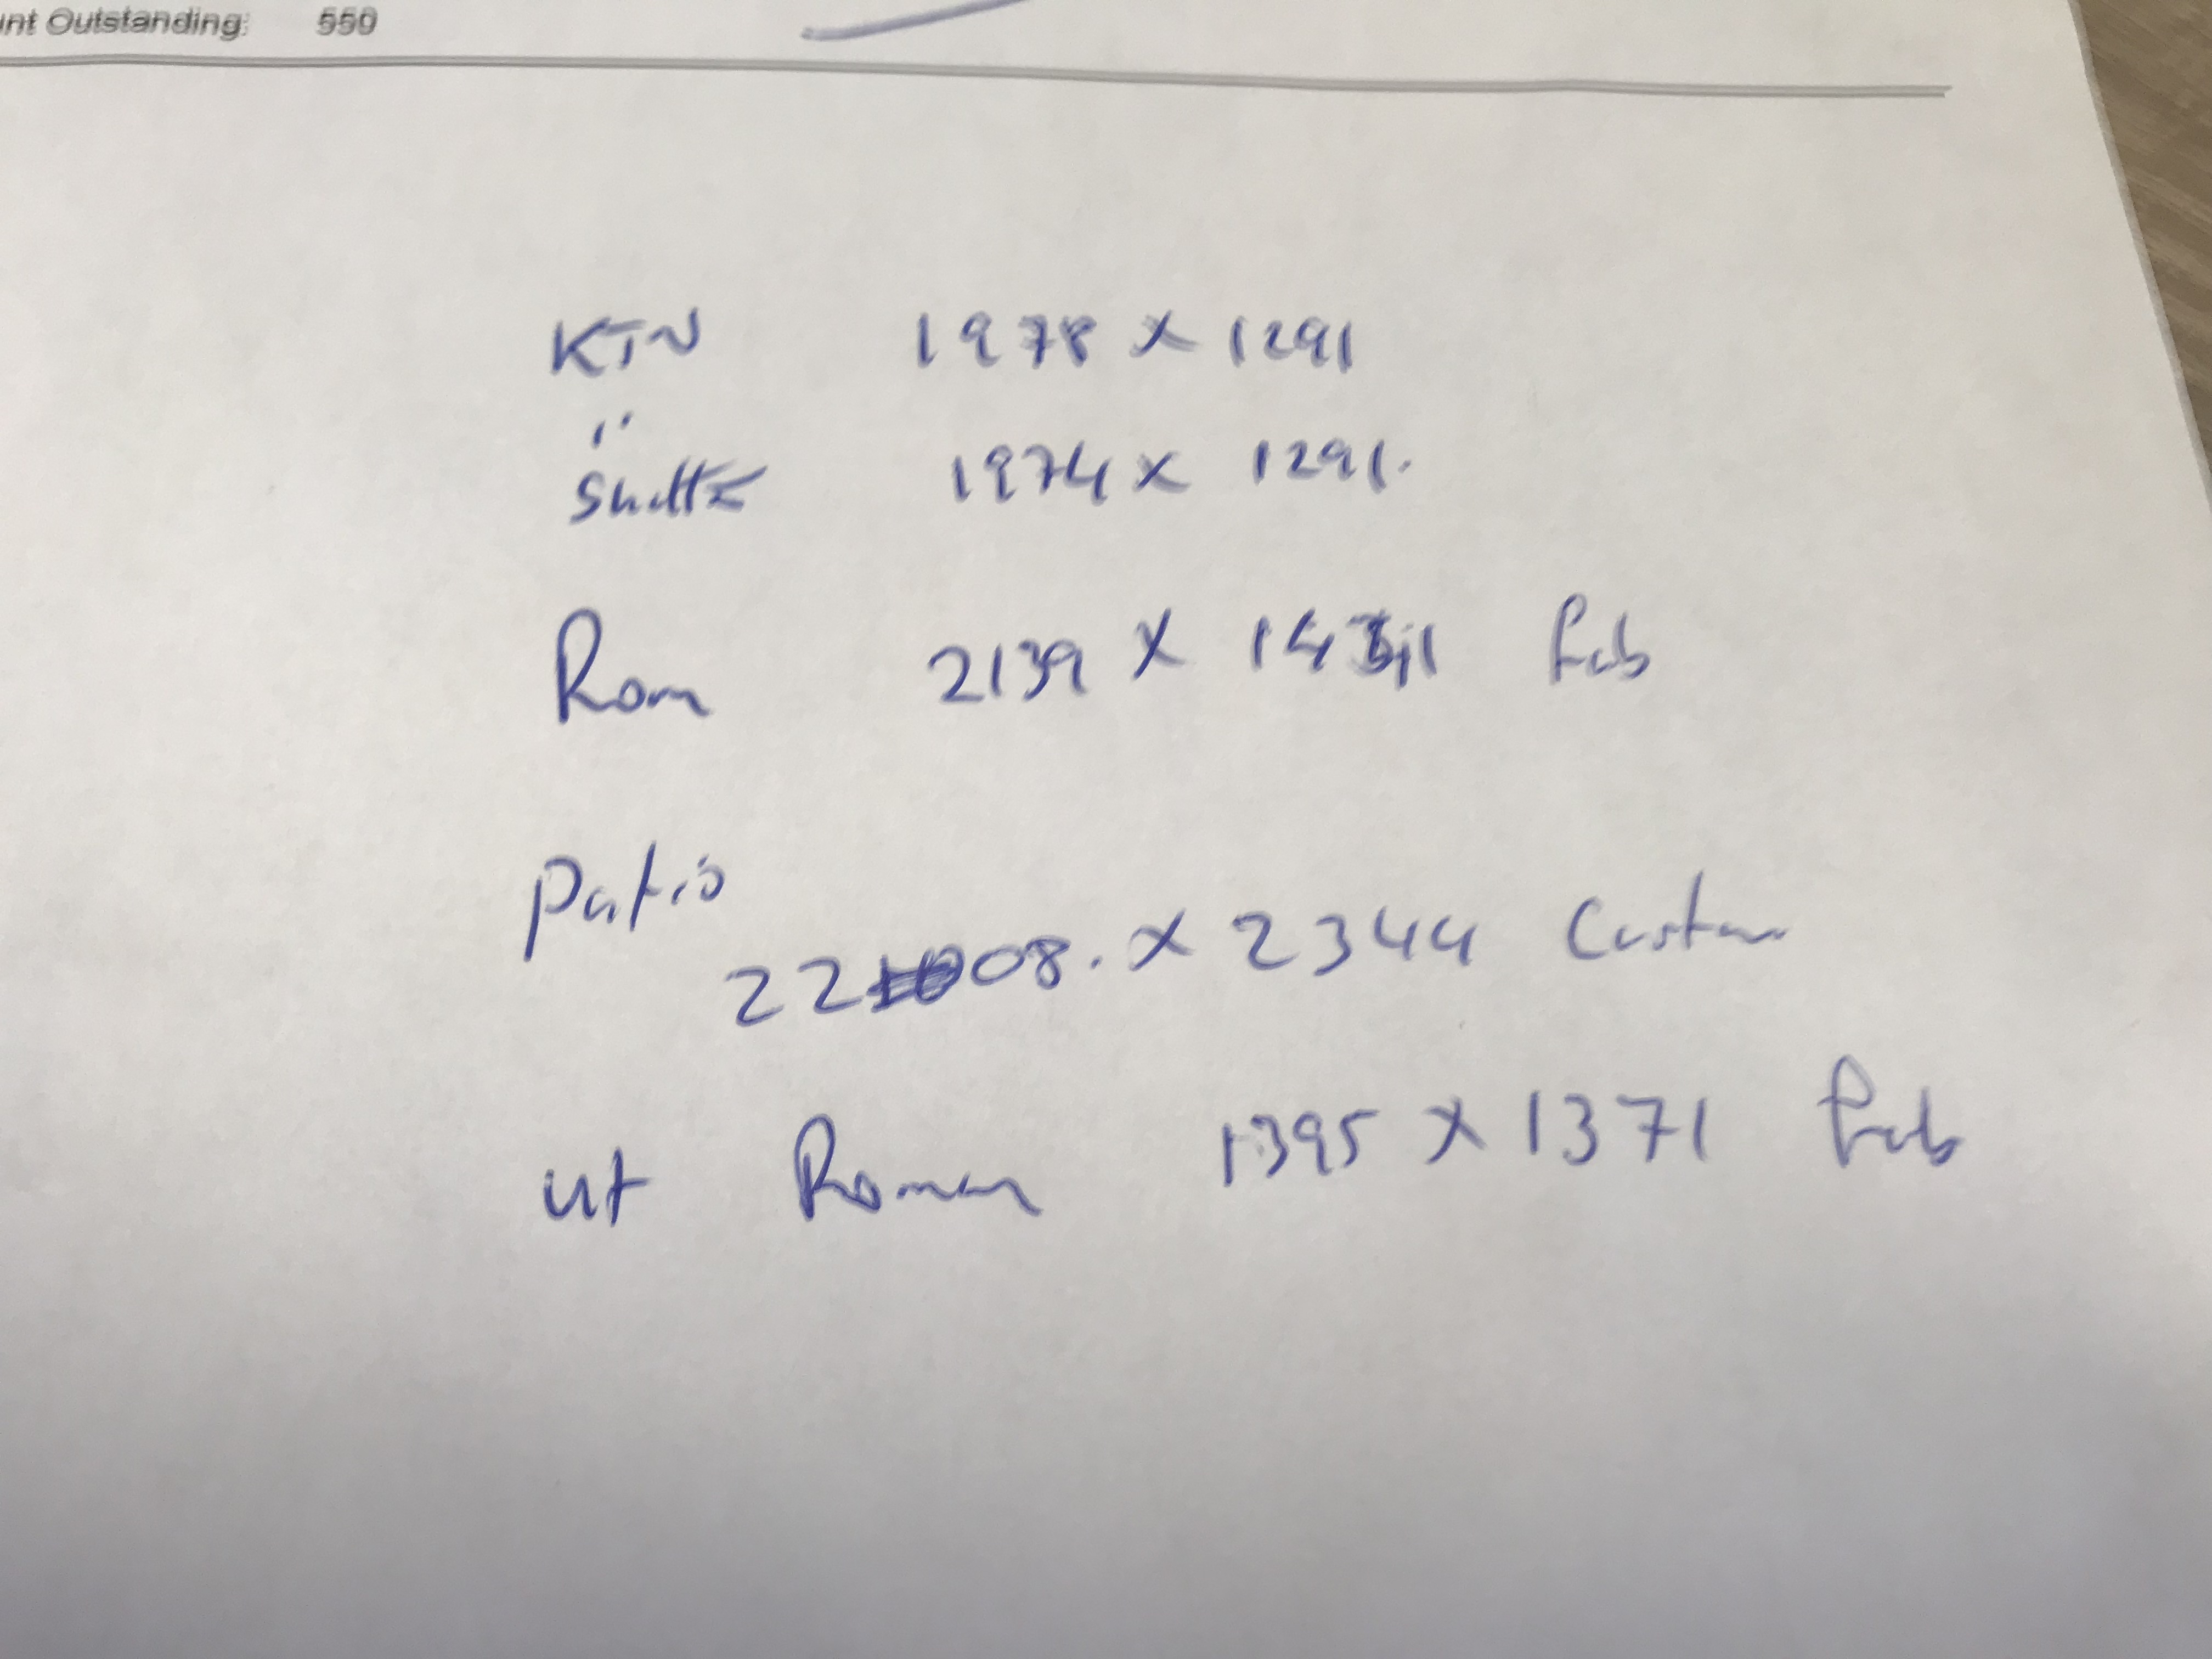 nt Outstanding: 550
KTN 1978 x 1291
"
Shutte 1974 x 1291.
Rom 2139 x Fab
Patio
2208. x 2344
Ut Roman 1395 x 1371 Fab